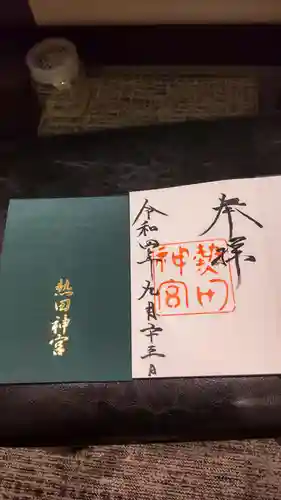 奉拝
熱田神宮
令和四年九月廿三日
熱田神宮